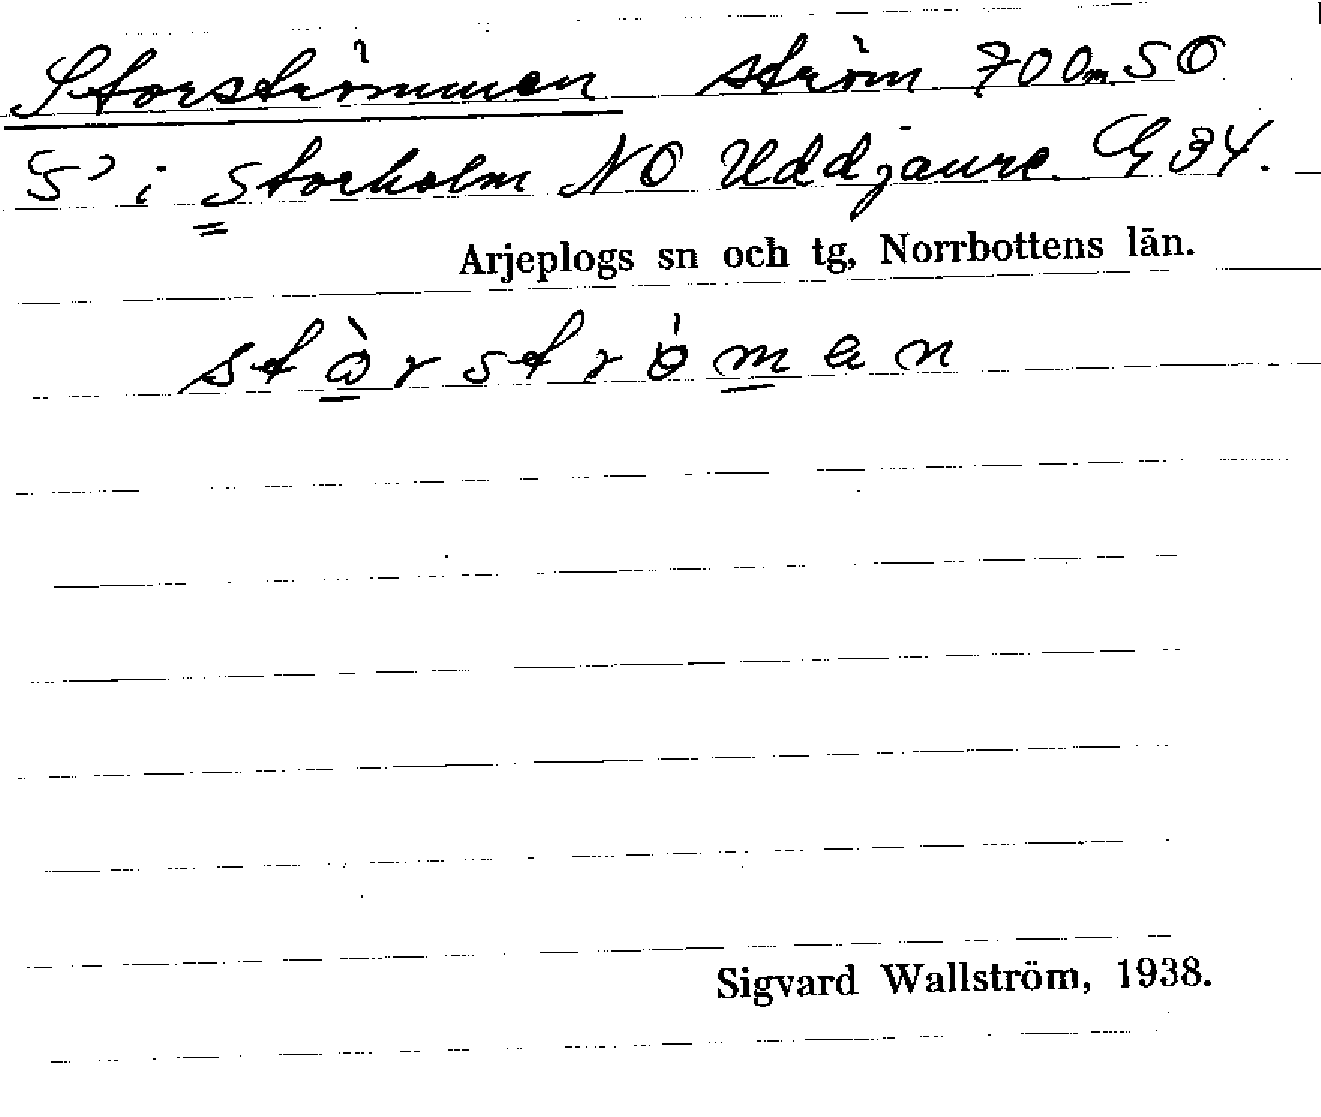 Storströmmen ström 700m SO
S i Storholm NO Uddjaure. G 34.
Arjeplogs sn och tg, Norrbottens län.
stòrströ́man
Sigvard Wallström, 1938.